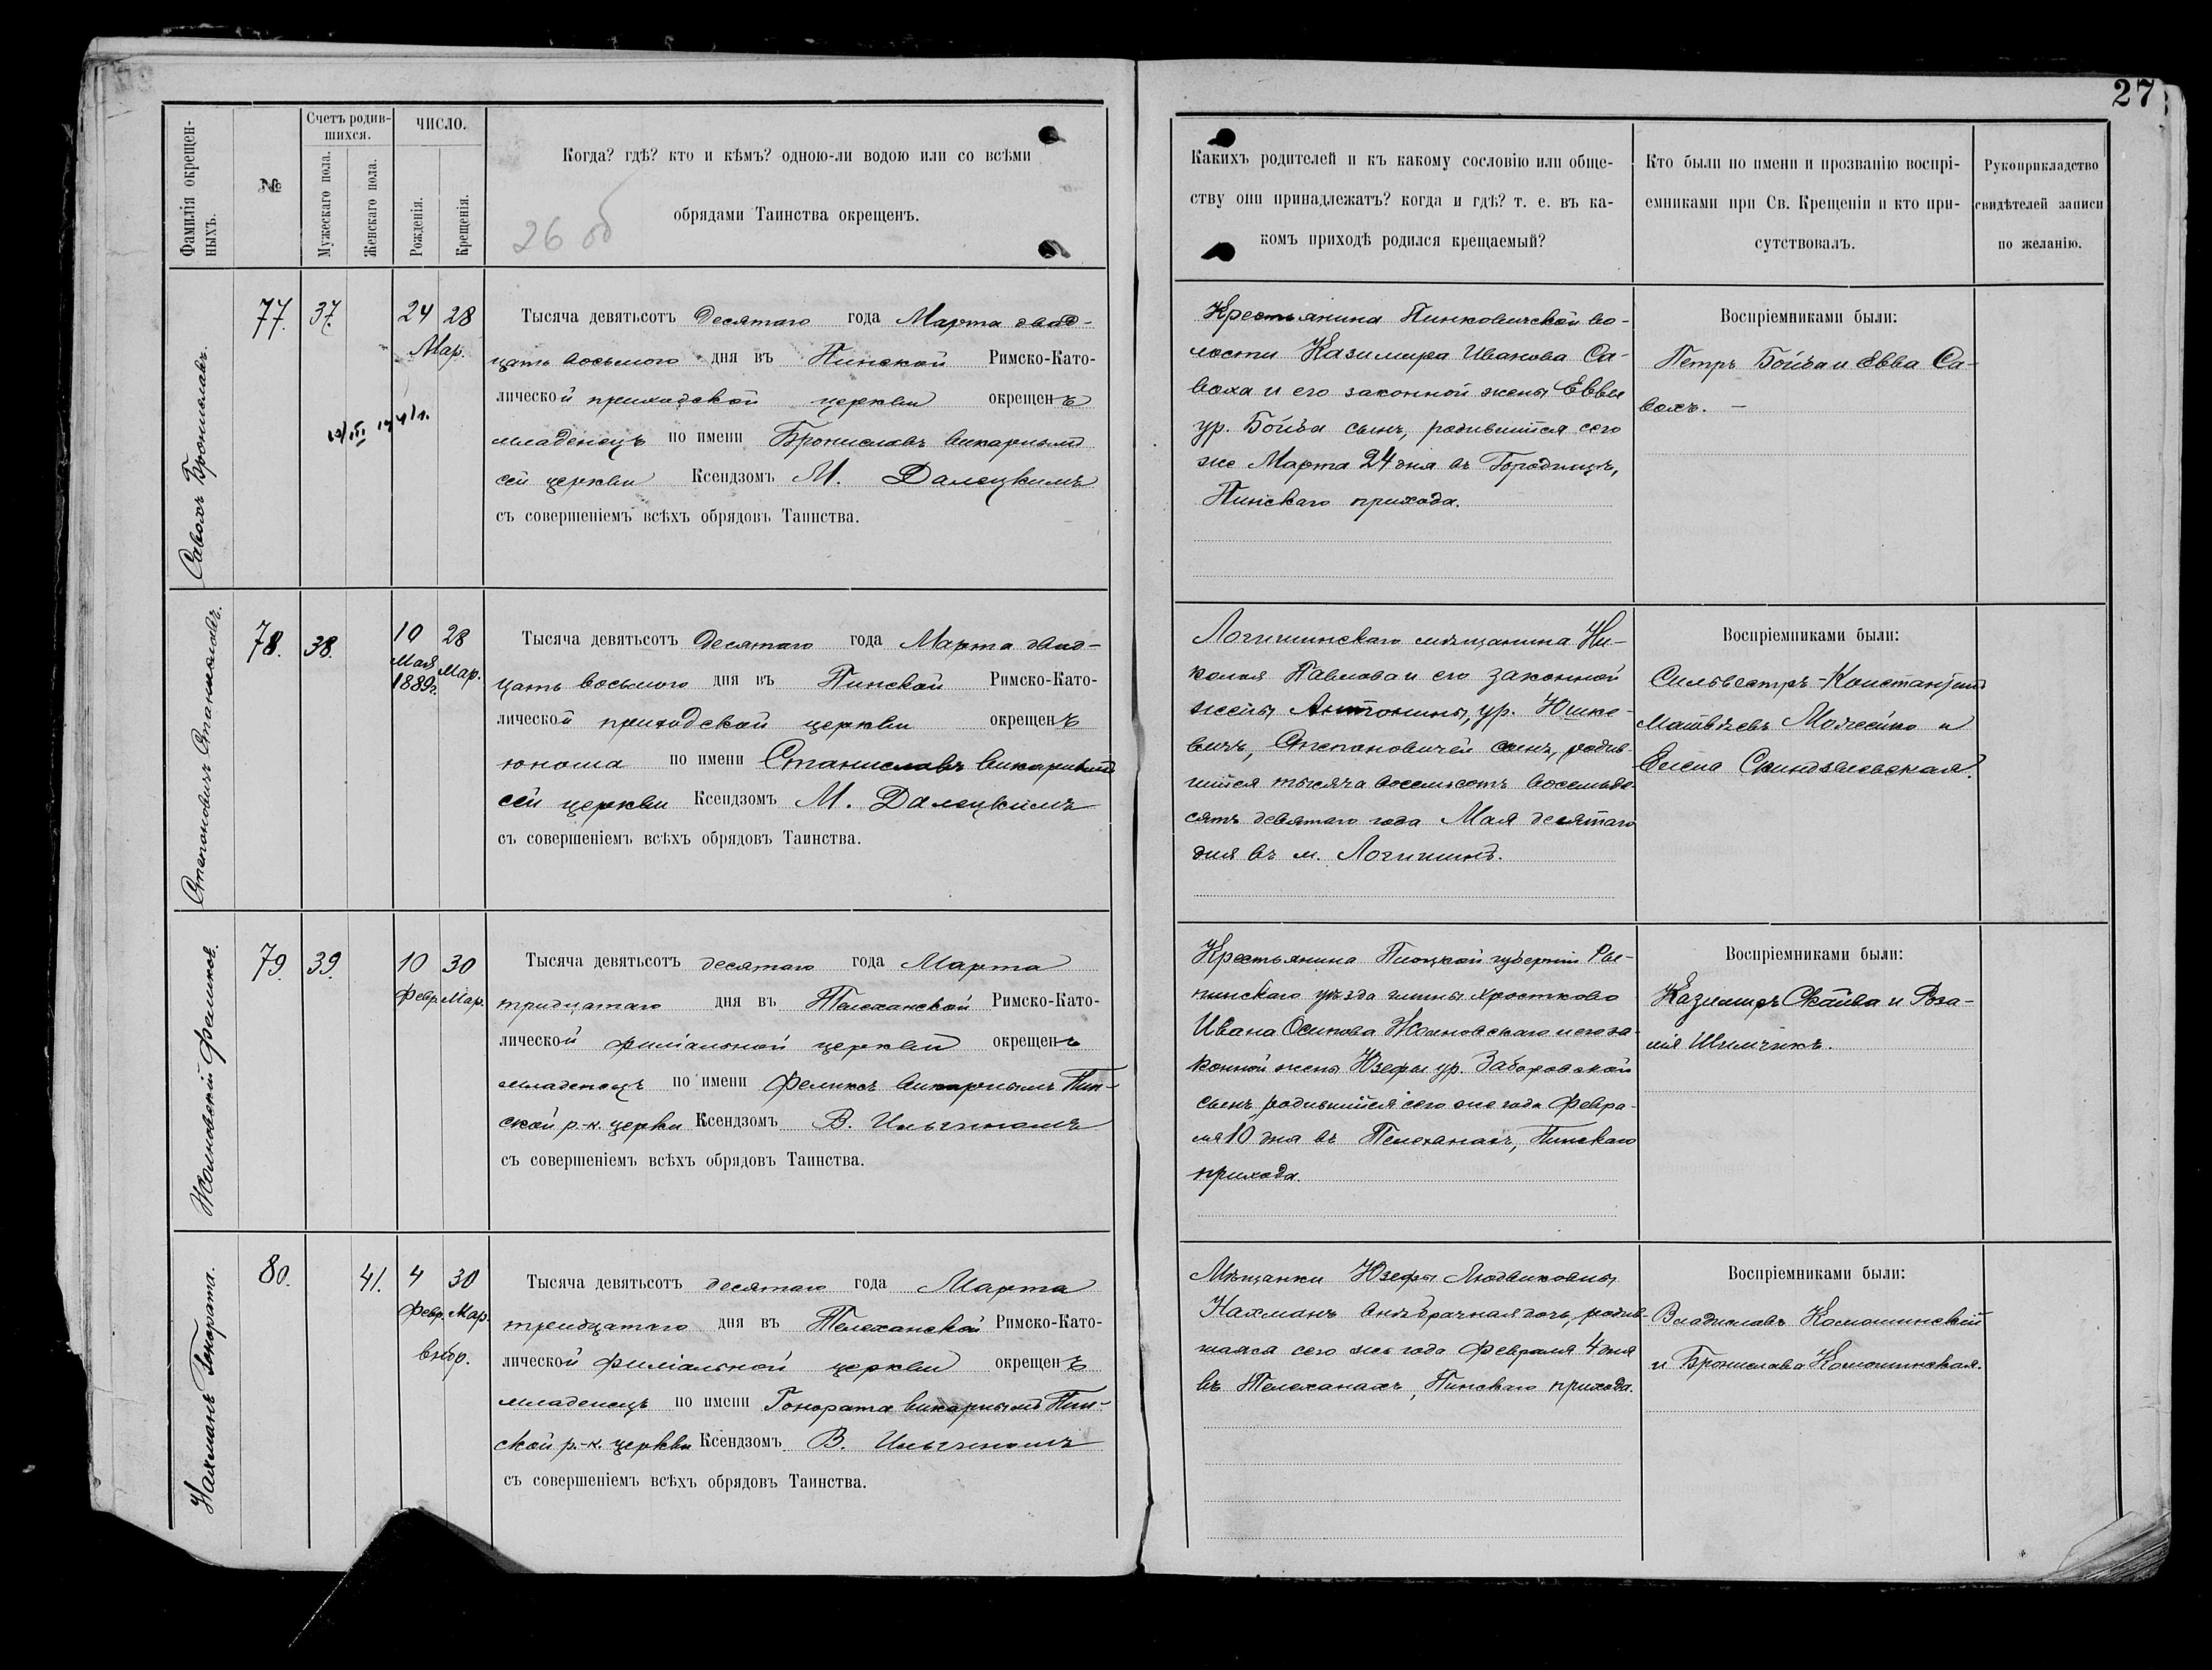 27
Фамилія окрещен-
ныхъ.
№
Счетъ родив-
шихся.
Мужескаго пола.
Женскаго пола.
ЧИСЛО.
Рожденія.
Крещенія.
Когда? гдѣ? кто и кѣмъ? одною-ли водою или со всѣми
обрядами Таинства окрещенъ.
26 об
Какихъ родителей и къ какому сословію или обще-
ству они принадлежатъ? когда и гдѣ? т. е. въ ка-
комъ приходѣ родился крещаемый?
Кто были по имени и прозванію воспрі-
емниками при Св. Крещеніи и кто при-
сутствовалъ.
Рукоприкладство
свидѣтелей записи
по желанію.
Савохъ Брониславъ.
77. 37. 24 28
Мар.
Тысяча девятьсотъ десятаго года Марта двад-
цать восьмого дня въ Пинской Римско-Като-
лической приходской церкви окрещенъ
младенецъ по имени Брониславъ викарнымъ
сей церкви Ксендзомъ М. Далецкимъ
съ совершеніемъ всѣхъ обрядовъ Таинства.
Крестьянина Пинковичской во-
лости Казимира Иванова Са-
воха и его законной жены Еввы
ур. Бойба сынъ, родившійся сего
же Марта 24 дня въ Городищѣ,
Пинскаго прихода.
Воспріемниками были:
Петръ Бойба и Евва Са-
вохъ. —
Степановичъ Станиславъ.
78. 38. 10 28
Мая Мар.
1889г.
Тысяча девятьсотъ десятаго года Марта двад-
цать восьмого дня въ Пинской Римско-Като-
лической приходской церкви окрещенъ
юноша по имени Станиславъ викарнымъ
сей церкви Ксендзомъ М. Далецкимъ
съ совершеніемъ всѣхъ обрядовъ Таинства.
Логишинскаго мѣщанина Ни-
колая Павлова и его законной
жены Антонины, ур. Юшке-
вичъ, Степановичей сынъ, родив-
шійся тысяча восемьсотъ восемьде-
сятъ девятаго года Мая десятаго
дня въ м. Логишинѣ.
Воспріемниками были:
Сильвестръ-Константинъ
Матвѣевъ Можейко и
Елена Скиндзелевская.
Жолновскій Феликсъ.
79. 39. 10 30
Февр. Мар.
Тысяча девятьсотъ десятаго года Марта
тридцатаго дня въ Телеханской Римско-Като-
лической филіальной церкви окрещенъ
младенецъ по имени Феликсъ викарнымъ Пин-
ской р.-к. церкви Ксендзомъ В. Ильгиномъ
съ совершеніемъ всѣхъ обрядовъ Таинства.
Крестьянина Плоцкой губерніи Ры-
пинскаго уѣзда гмины Хростково
Ивана Осипова Жолновскаго и его за-
конной жены Юзефы ур. Заборовской
сынъ, родившійся сего же года Февра-
ля 10 дня въ Телеханахъ, Пинскаго
прихода.
Воспріемниками были:
Казимиръ Скайва и Роза-
лія Шимчикъ.
Нахманъ Гонората.
80. 41. 4 30
Февр. Мар.
внѣбр.
Тысяча девятьсотъ десятаго года Марта
тридцатаго дня въ Телеханской Римско-Като-
лической филіальной церкви окрещенъ
младенецъ по имени Гонората викарнымъ Пин-
ской р.-к. церкви Ксендзомъ В. Ильгиномъ
съ совершеніемъ всѣхъ обрядовъ Таинства.
Мѣщанки Юзефы Людвиковны
Нахманъ внѣбрачная дочь, родив-
шаяся сего же года Февраля 4 дня
въ Телеханахъ, Пинскаго прихода.
Воспріемниками были:
Владиславъ Комошинскій
и Бронислава Комошинская.